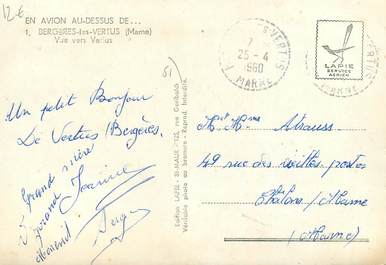 12€
EN AVION AU-DESSUS DE...
1. BERGÈRES-les-VERTUS (Marne)
Vue vers Vertus
51
Un petit Bonjour
De Vertus (Bergères.
Grand'mère
Jeanine
Serge
Edition LAPIE - ST-MAUR
rue Garibaldi
Véritable photo au bromure - Reprod. Interdite.
VERTUS
7
25-4
1960
MARNE
LAPIE
SERVICE
AERIEN
VERTUS
MARNE
Mr Mme Strauss
49 rue des vieilles postes
Châlons s/Marne
(Marne)